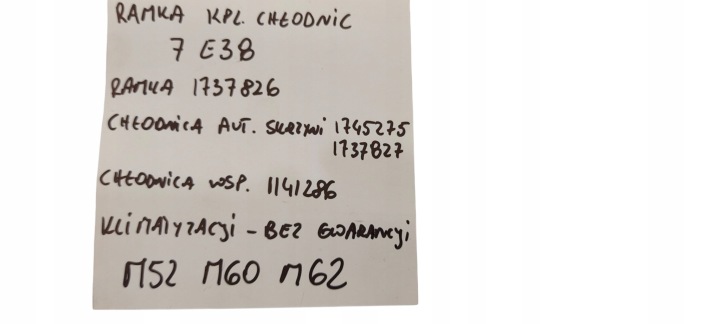 RAMKA KPL. CHŁODNIC
7 E38
RAMKA 1737826
CHŁODNICA AUT. SKRZYNI 1745275
1737827
CHŁODNICA WSP. 1141286
KLIMATYZACJI - BEZ GWARANCJI
M52 M60 M62